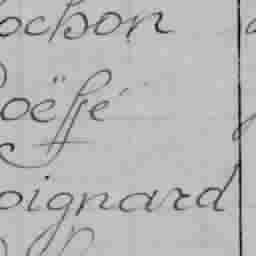 ochon
oëffé
oignard